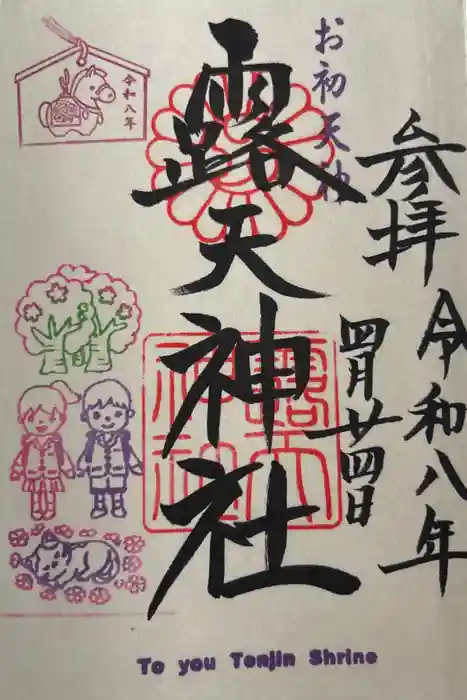 参拝
令和八年
四月廿四日
お初天神
露天神社
令和八年
露天
神社
To you Tenjin Shrine